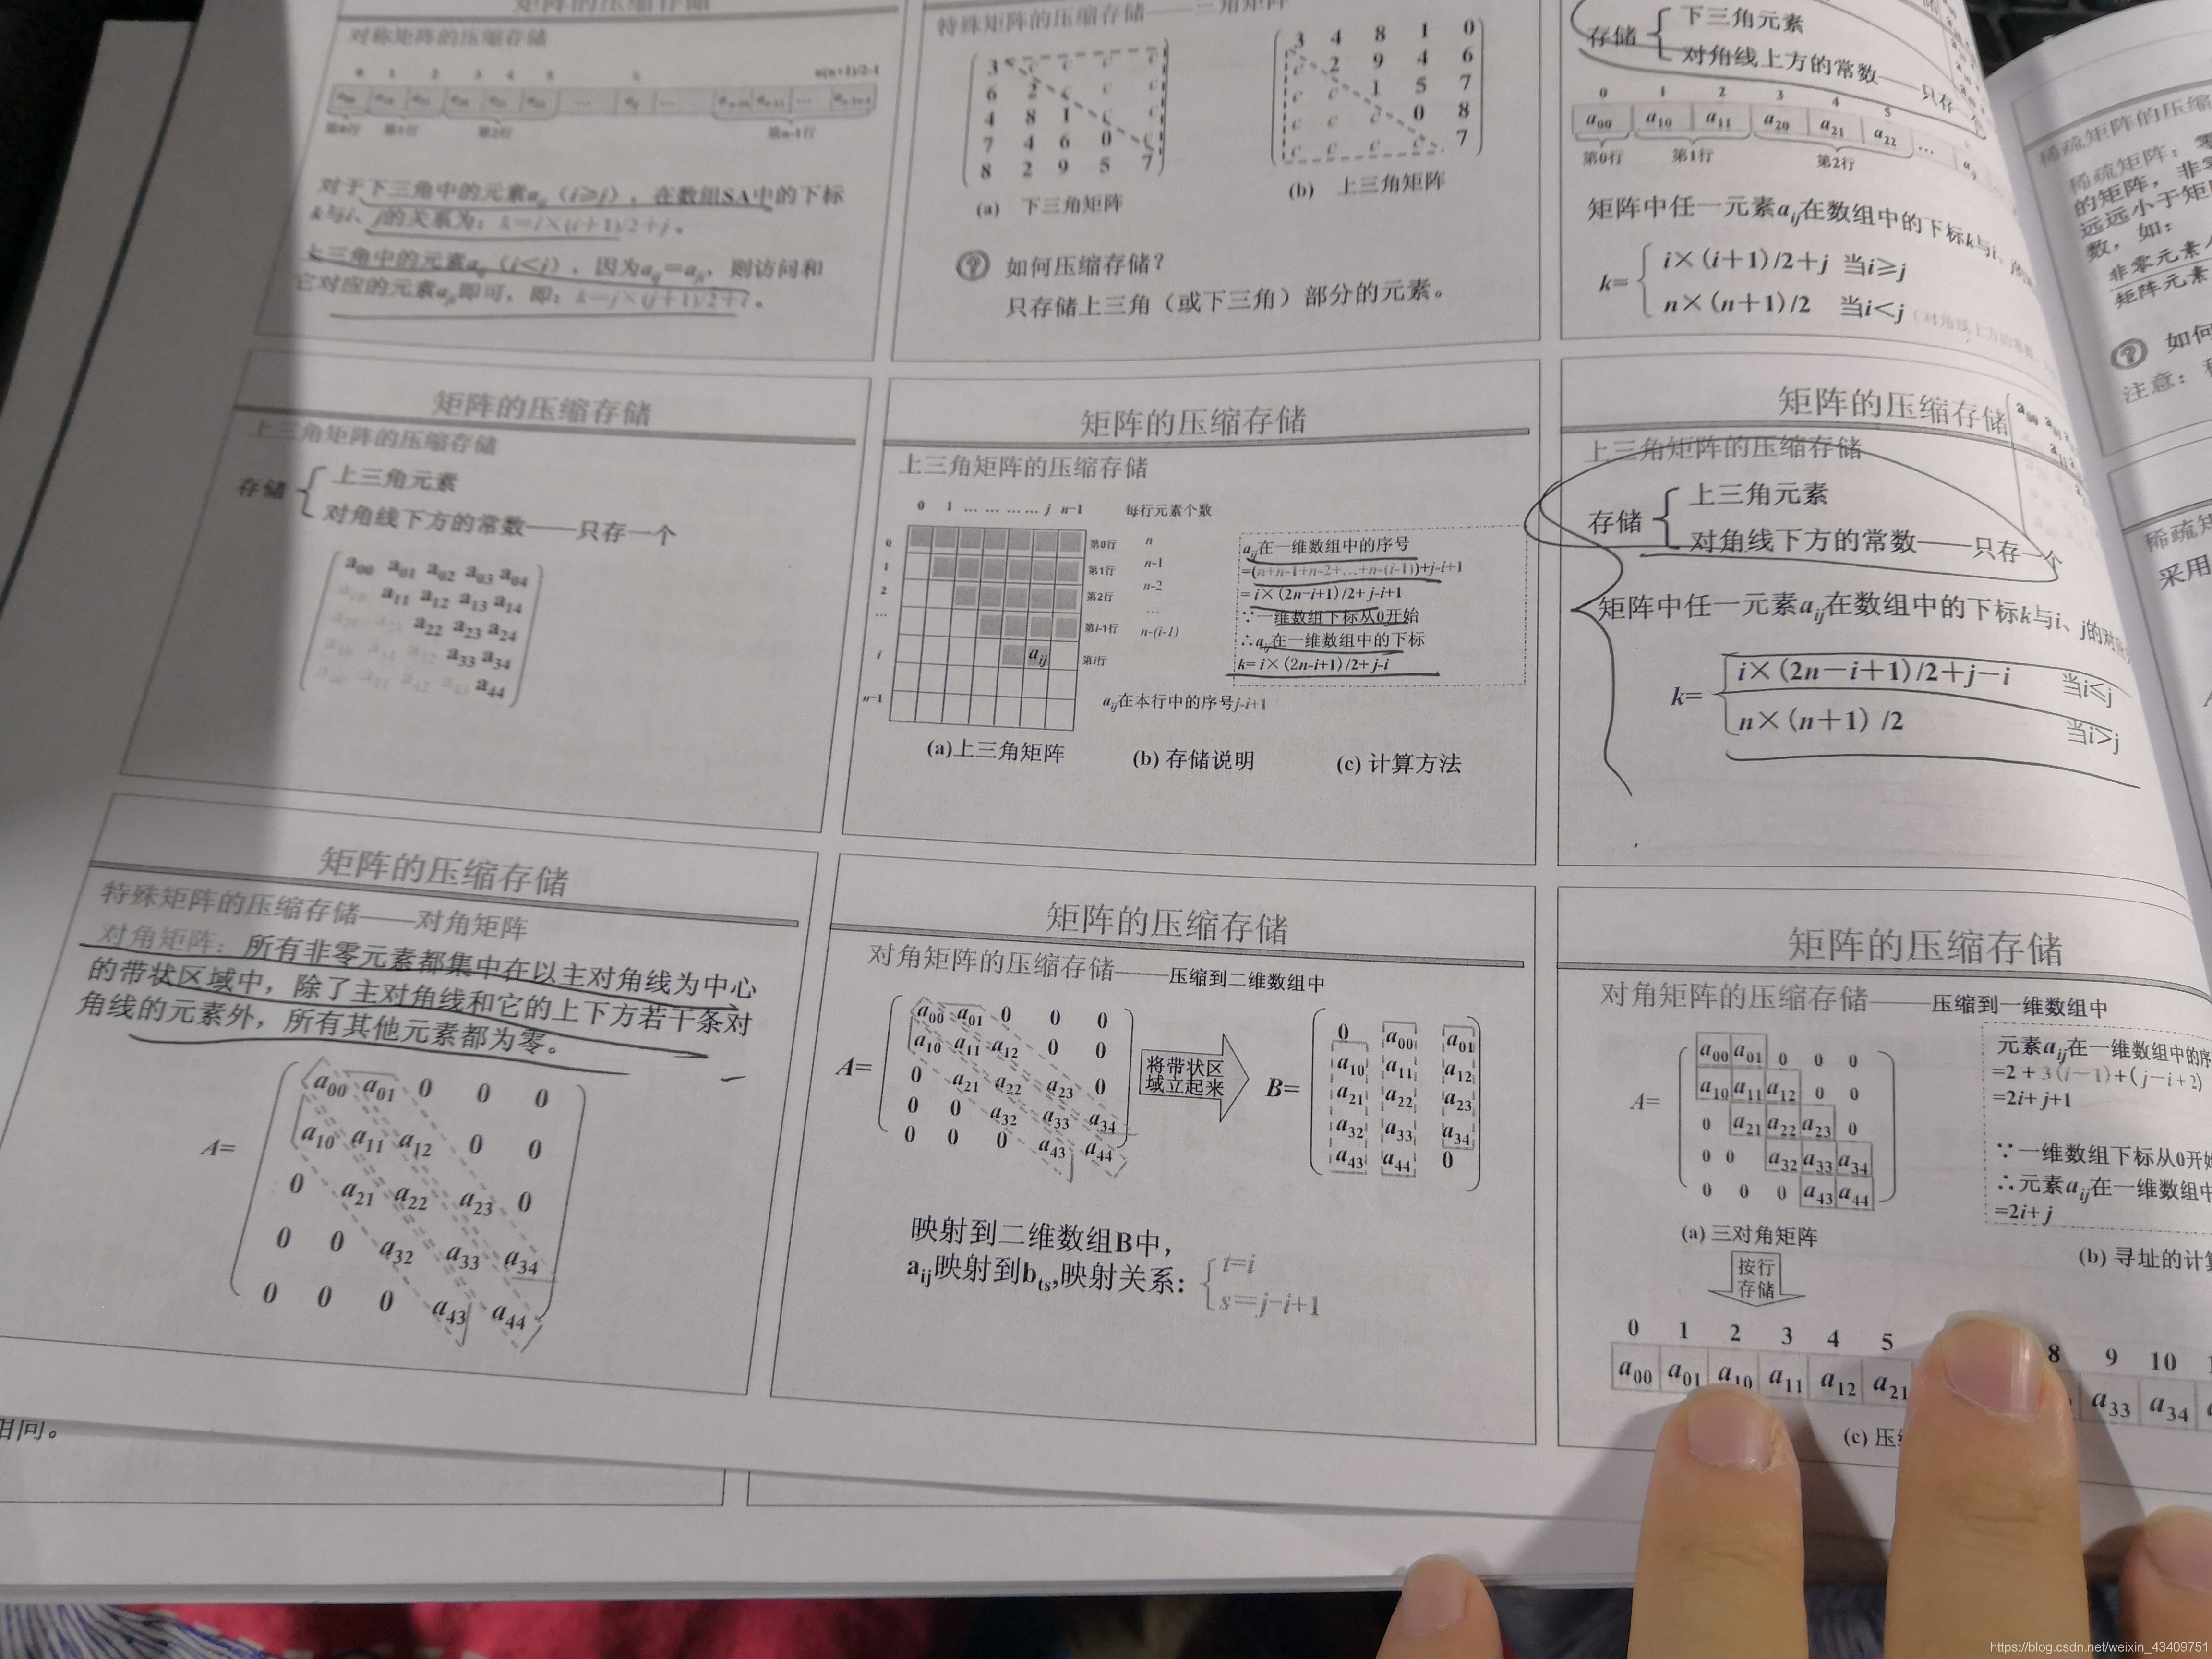 矩阵的压缩存储
对称矩阵的压缩存储
0 1 2 3 4 5 k n(n+1)/2-1
第0行 第1行 第2行 第n-1行
对于下三角中的元素aij（i≥j），在数组SA中的下标
k与i、j的关系为：k=i×(i+1)/2+j。
上三角中的元素aij（i<j），因为aij=aji，则访问和
它对应的元素aji即可，即：k=j×(j+1)/2+i。
特殊矩阵的压缩存储——三角矩阵
3 c c c c
6 2 c c c
4 8 1 c c
7 4 6 0 c
8 2 9 5 7
(a) 下三角矩阵
3 4 8 1 0
c 2 9 4 6
c c 1 5 7
c c c 0 8
c c c c 7
(b) 上三角矩阵
? 如何压缩存储？
只存储上三角（或下三角）部分的元素。
存储
下三角元素
对角线上方的常数——只存
0 1 2 3 4 5
a00 a10 a11 a20 a21 a22 … aij
第0行 第1行 第2行
矩阵中任一元素aij在数组中的下标k与i、j的
k=
i×(i+1)/2+j 当i≥j
n×(n+1)/2 当i<j
稀疏矩阵的压缩
稀疏矩阵：
的矩阵，非零
远远小于矩
数，如：
非零元素
矩阵元素
? 如何
注意：
矩阵的压缩存储
上三角矩阵的压缩存储
存储
上三角元素
对角线下方的常数——只存一个
a00 a01 a02 a03 a04
a10 a11 a12 a13 a14
a20 a21 a22 a23 a24
a30 a31 a32 a33 a34
a40 a41 a42 a43 a44
矩阵的压缩存储
上三角矩阵的压缩存储
0 1 … … … … j n-1 每行元素个数
0 第0行 n
1 第1行 n-1
2 第2行 n-2
… …
第i-1行 n-(i-1)
i aij 第i行
n-1
aij在本行中的序号j-i+1
aij在一维数组中的序号
=(n+n-1+n-2+…+n-(i-1))+j-i+1
= i×(2n-i+1)/2+ j-i+1
∵一维数组下标从0开始
∴aij在一维数组中的下标
k= i×(2n-i+1)/2+ j-i
(a)上三角矩阵 (b) 存储说明 (c) 计算方法
矩阵的压缩存储
上三角矩阵的压缩存储
存储
上三角元素
对角线下方的常数——只存一个
矩阵中任一元素aij在数组中的下标k与i、j的对
k=
i×(2n−i+1)/2+j−i 当i≤j
n×(n+1) /2 当i>j
稀疏矩
采用
矩阵的压缩存储
特殊矩阵的压缩存储——对角矩阵
对角矩阵：所有非零元素都集中在以主对角线为中心
的带状区域中，除了主对角线和它的上下方若干条对
角线的元素外，所有其他元素都为零。
A=
a00 a01 0 0 0
a10 a11 a12 0 0
0 a21 a22 a23 0
0 0 a32 a33 a34
0 0 0 a43 a44
矩阵的压缩存储
对角矩阵的压缩存储——压缩到二维数组中
A=
a00 a01 0 0 0
a10 a11 a12 0 0
0 a21 a22 a23 0
0 0 a32 a33 a34
0 0 0 a43 a44
将带状区
域立起来
B=
0 a00 a01
a10 a11 a12
a21 a22 a23
a32 a33 a34
a43 a44 0
映射到二维数组B中，
aij映射到bts,映射关系:
t=i
s=j-i+1
矩阵的压缩存储
对角矩阵的压缩存储——压缩到一维数组中
A=
a00 a01 0 0 0
a10 a11 a12 0 0
0 a21 a22 a23 0
0 0 a32 a33 a34
0 0 0 a43 a44
(a) 三对角矩阵
按行
存储
元素aij在一维数组中的序
=2 + 3(i−1)+(j−i+2)
=2i+ j+1
∵一维数组下标从0开始
∴元素aij在一维数组中
=2i+ j
(b) 寻址的计算
0 1 2 3 4 5 8 9 10
a00 a01 a10 a11 a12 a21 a33 a34
(c) 压
相同。
https://blog.csdn.net/weixin_43409751